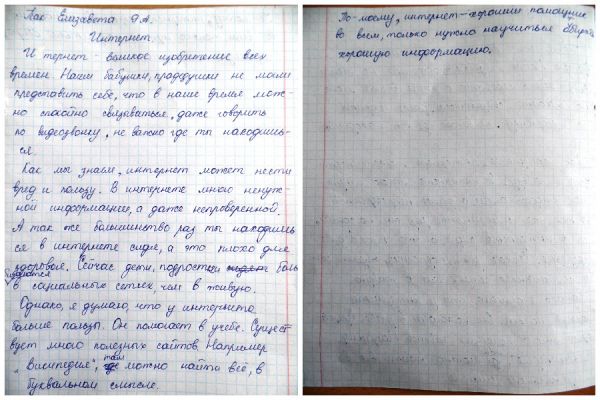 Пак Елизавета 9А.
Интернет.
И тернет - великое изобретение всех
времен. Наши бабушки, прадедушки не могли
представить себе, что в наше время мож-
но спокойно связываться, даже говорить
по видеозвонку, не важно где ты находишь-
ся.
Как мы знаем, интернет может нести
вред и пользу. В интернете много ненуж-
ной информации, а даже непроверенной.
А так же большинство раз ты находишь
ся в интернете сидя, а это плохо для
здоровья. Сейчас дети, подростки боль
общаются
в социальных сетях, чем в живую.
Однако, я думаю, что у интернета
больше пользы. Он помогает в учебе. Сущест
вует много полезных сайтов. Например
„Википедия", там можно найти всё, в
буквальном смысле.
По-моему, интернет - хороший помощник
во всем, только нужно научиться
хорошую информацию.